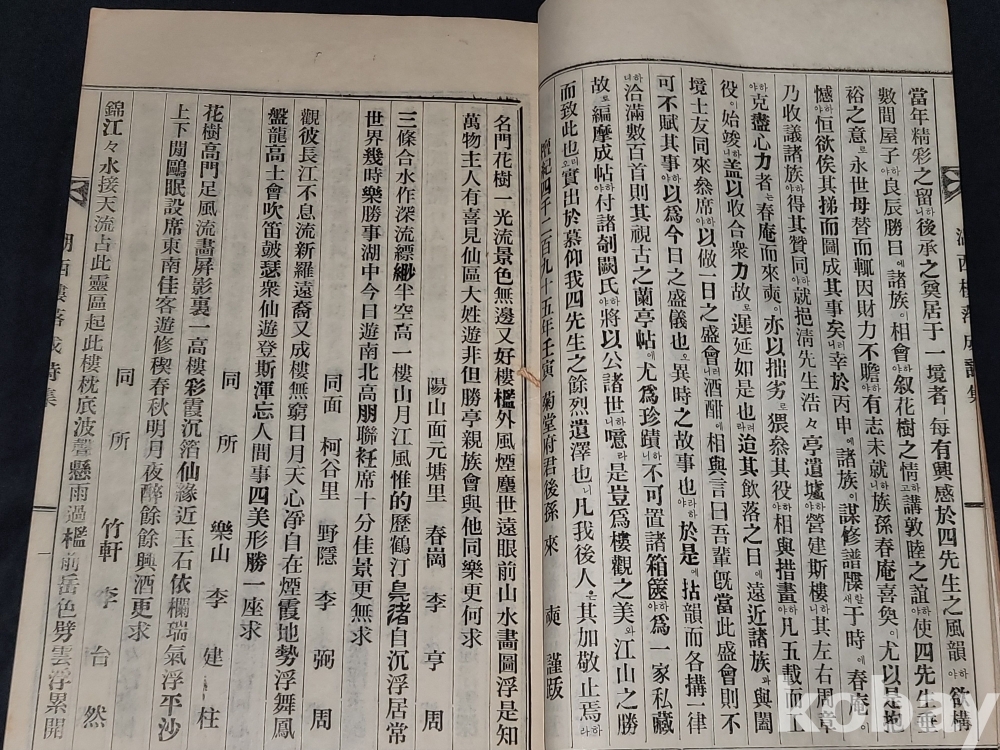 當年精彩之留니하後承之奠居于一境者ㅣ每有興感於四先生之風韻야하欲構
數間屋子야하良辰勝日에諸族이相會야하叙花樹之情고하講敦睦之誼야하使四先生
裕之意로永世毋替而輒因財力不贍야하有志未就니하族孫春庵喜奐이尤以是抱
憾야하恒欲俟其挮而圖成其事矣니러幸於丙申에諸族이謀修譜牒새할于時에春庵이
乃收議諸族야하得其贊同야하就挹淸先生浩々亭遺墟야하營建斯樓니하其左右周章
야하克盡心力者는春庵而來奭이亦以拙劣로猥參其役야하相與措畫야하凡五載而工
役이始竣니하盖以收合衆力故로遲延如是也ㅣ러라迨其飮落之日에遠近諸族과與闔
境士友同來參席야하以做一日之盛會니러酒酣에相與言曰吾輩旣當此盛會則不
可不賦其事야하以爲今日之盛儀也오異時之故事也ㅣ라야於是에拈韻而各搆一律
니하洽滿數百首則其視古之蘭亭帖에尤爲珍蹟니하不可置諸箱篋야하爲一家私藏
故로編摩成帖야하付諸剞劂氏야하將以公諸世니하噫라是豈爲樓觀之美와江山之勝
而致此也오리實出於慕仰我四先生之餘烈遺澤也니凡我後人은其加敬止焉라하
檀紀四千二百九十五年壬寅 菊堂府君後孫 來 奭 謹跋
湖西樓落成詩集
名門花樹一光流景色無邊又好樓檻外風煙塵世遠眼前山水畫圖浮是知
萬物主人有喜見仙區大姓遊非但勝亭親族會與他同樂更何求
陽山面元塘里 春崗 李 亨 周
三條合水作深流縹緲半空高一樓山月江風惟的歷鶴汀鳧渚自沉浮居常
世界幾時樂勝事湖中今日遊南北高朋聯衽席十分佳景更無求
同面 柯谷里 野隱 李 弼 周
觀彼長江不息流新羅遠裔又成樓無窮日月天心凈自在煙霞地勢浮舞鳳
盤龍高士會吹笛鼓瑟衆仙遊登斯渾忘人間事四美形勝一座求
同 所 樂山 李 建 柱
花樹高門足風流畵屏影裏一高樓彩霞沉箔仙緣近玉石依欄瑞氣浮平沙
上下閒鷗眠設席東南佳客遊修稧春秋明月夜醉餘餘興酒更求
同 所 竹軒 李 台 然
錦江々水接天流占此靈區起此樓枕底波聲懸雨過檻前岳色劈雲浮累開
湖西樓落成詩集
一
kobay